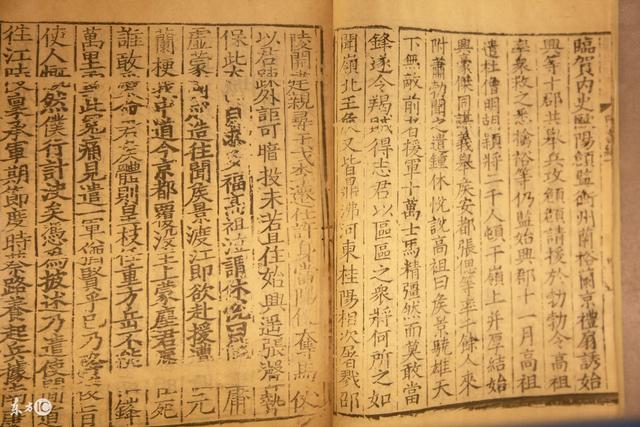 臨賀內史歐陽頠監衡州蘭裕蘭京禮扇誘始
興等十郡共舉兵攻頠頠請援於勃勃令高祖
率衆救之悉擒裕等仍監始興郡十一月高祖
遣杜僧明胡穎將二千人頓于嶺上并厚結始
興豪傑同謀義舉侯安都張偲等率千餘人來
附蕭勃聞之遣鍾休悅說高祖曰侯景驍雄天
下無敵前者援軍十萬士馬精彊然而莫敢當
鋒遂令羯賊得志君以區區之衆將何所之如
聞嶺北王侯又皆鼎沸河東桂陽相次屠戮邵
陵開建親尋干戈李遷仕許身當陽便奪馬仗
以君疎外詎可暗投未若且住始興遙張聲勢
保此太自求多福高祖泣謂休悅曰庸
虛蒙國造往聞侯景渡江即欲赴援遭元
蘭梗我中道今京都覆沒主上蒙塵君辱死
誰敢愛命君侯體則皇枝任重方岳不能鋒
萬里雪此冤痛見遣一軍猶賢乎已乃降後旨
使人慨然僕行計決矣憑為披述乃遣使間道
往江陵稟承軍期節度時蔡路養起兵據南康